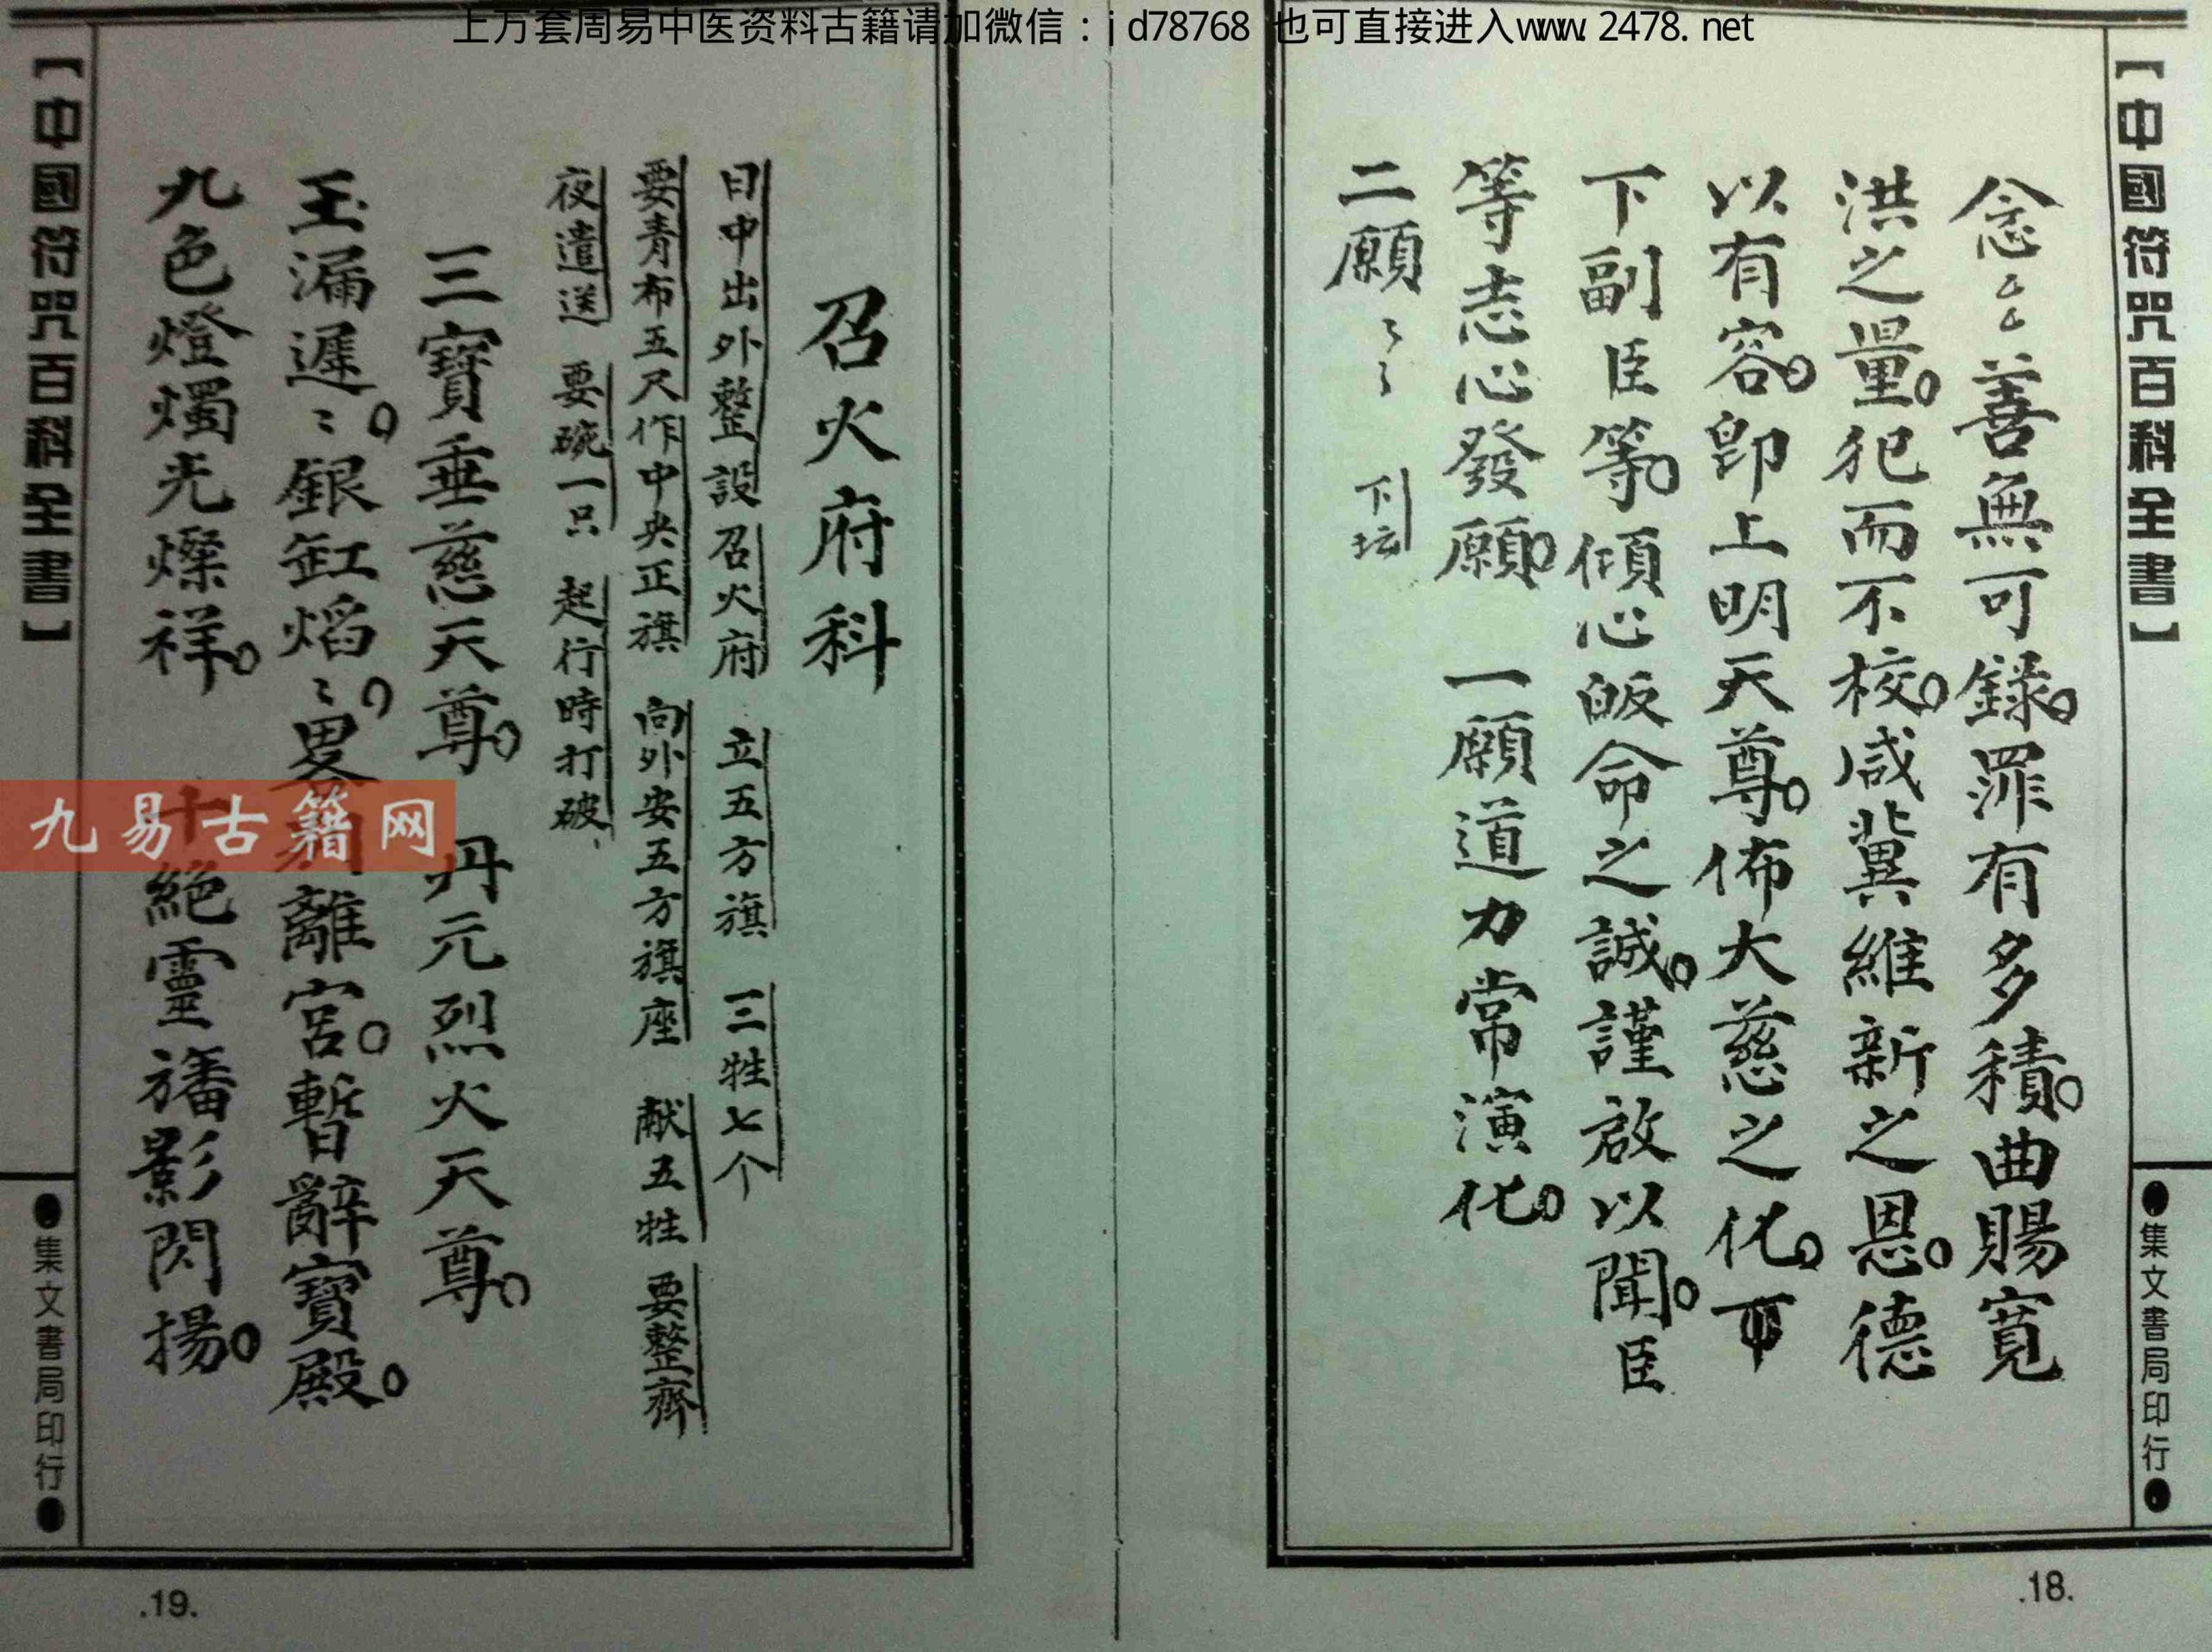 上万套周易中医资料古籍请加微信：jd78768 也可直接进入www.2478.net
【中國符咒百科全書】
●集文書局印行●
念〻〻善無可錄。罪有多積。曲賜寬
洪之量。犯而不校。咸冀維新之恩。德
以有容。卽上明天尊。佈大慈之化。
下副臣等。傾心皈命之誠。謹啟以聞。臣
等志心發願。 一願道力常演化。
二願〻〻 下坛
.18.
召火府科
日中出外整設召火府 立五方旗 三牲七个
要青布五尺作中央正旗 向外安五方旗座 献五牲 要整齊
夜遣送 要碗一只 起行時打破
三寶垂慈天尊。 丹元烈火天尊。
玉漏遲〻。銀缸焰〻。畧別離宮。暫辭寶殿。
九色燈燭光燦祥。 十絕靈旛影閃揚。
【中國符咒百科全書】
●集文書局印行●
.19.
九易古籍网